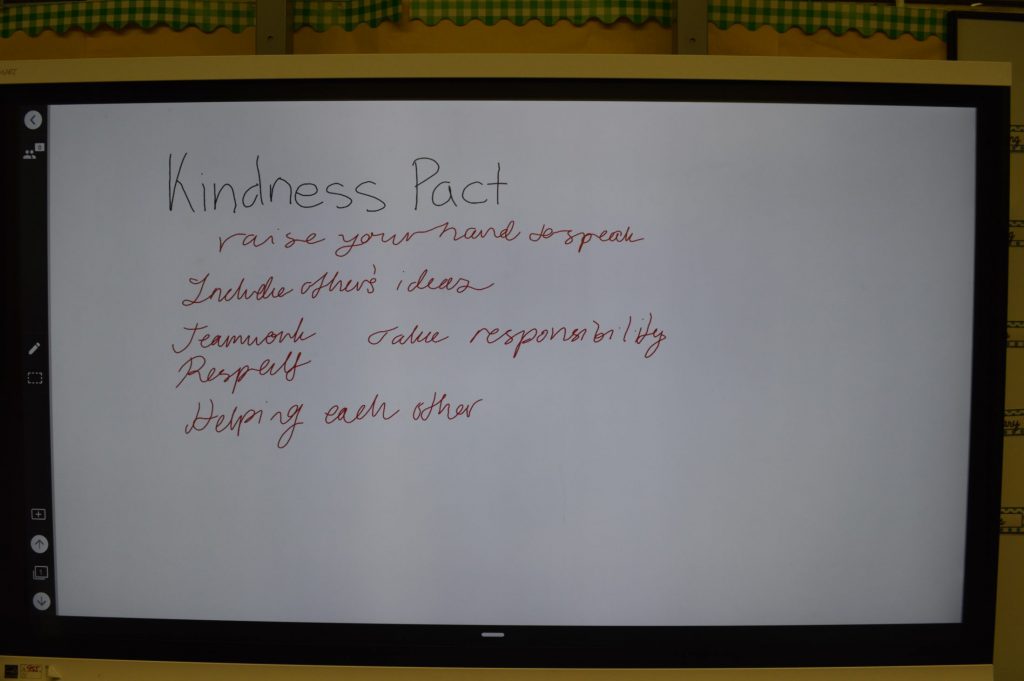 Kindness Pact
raise your hand to speak
Include other's ideas
Teamwork take responsibility
Respect
Helping each other